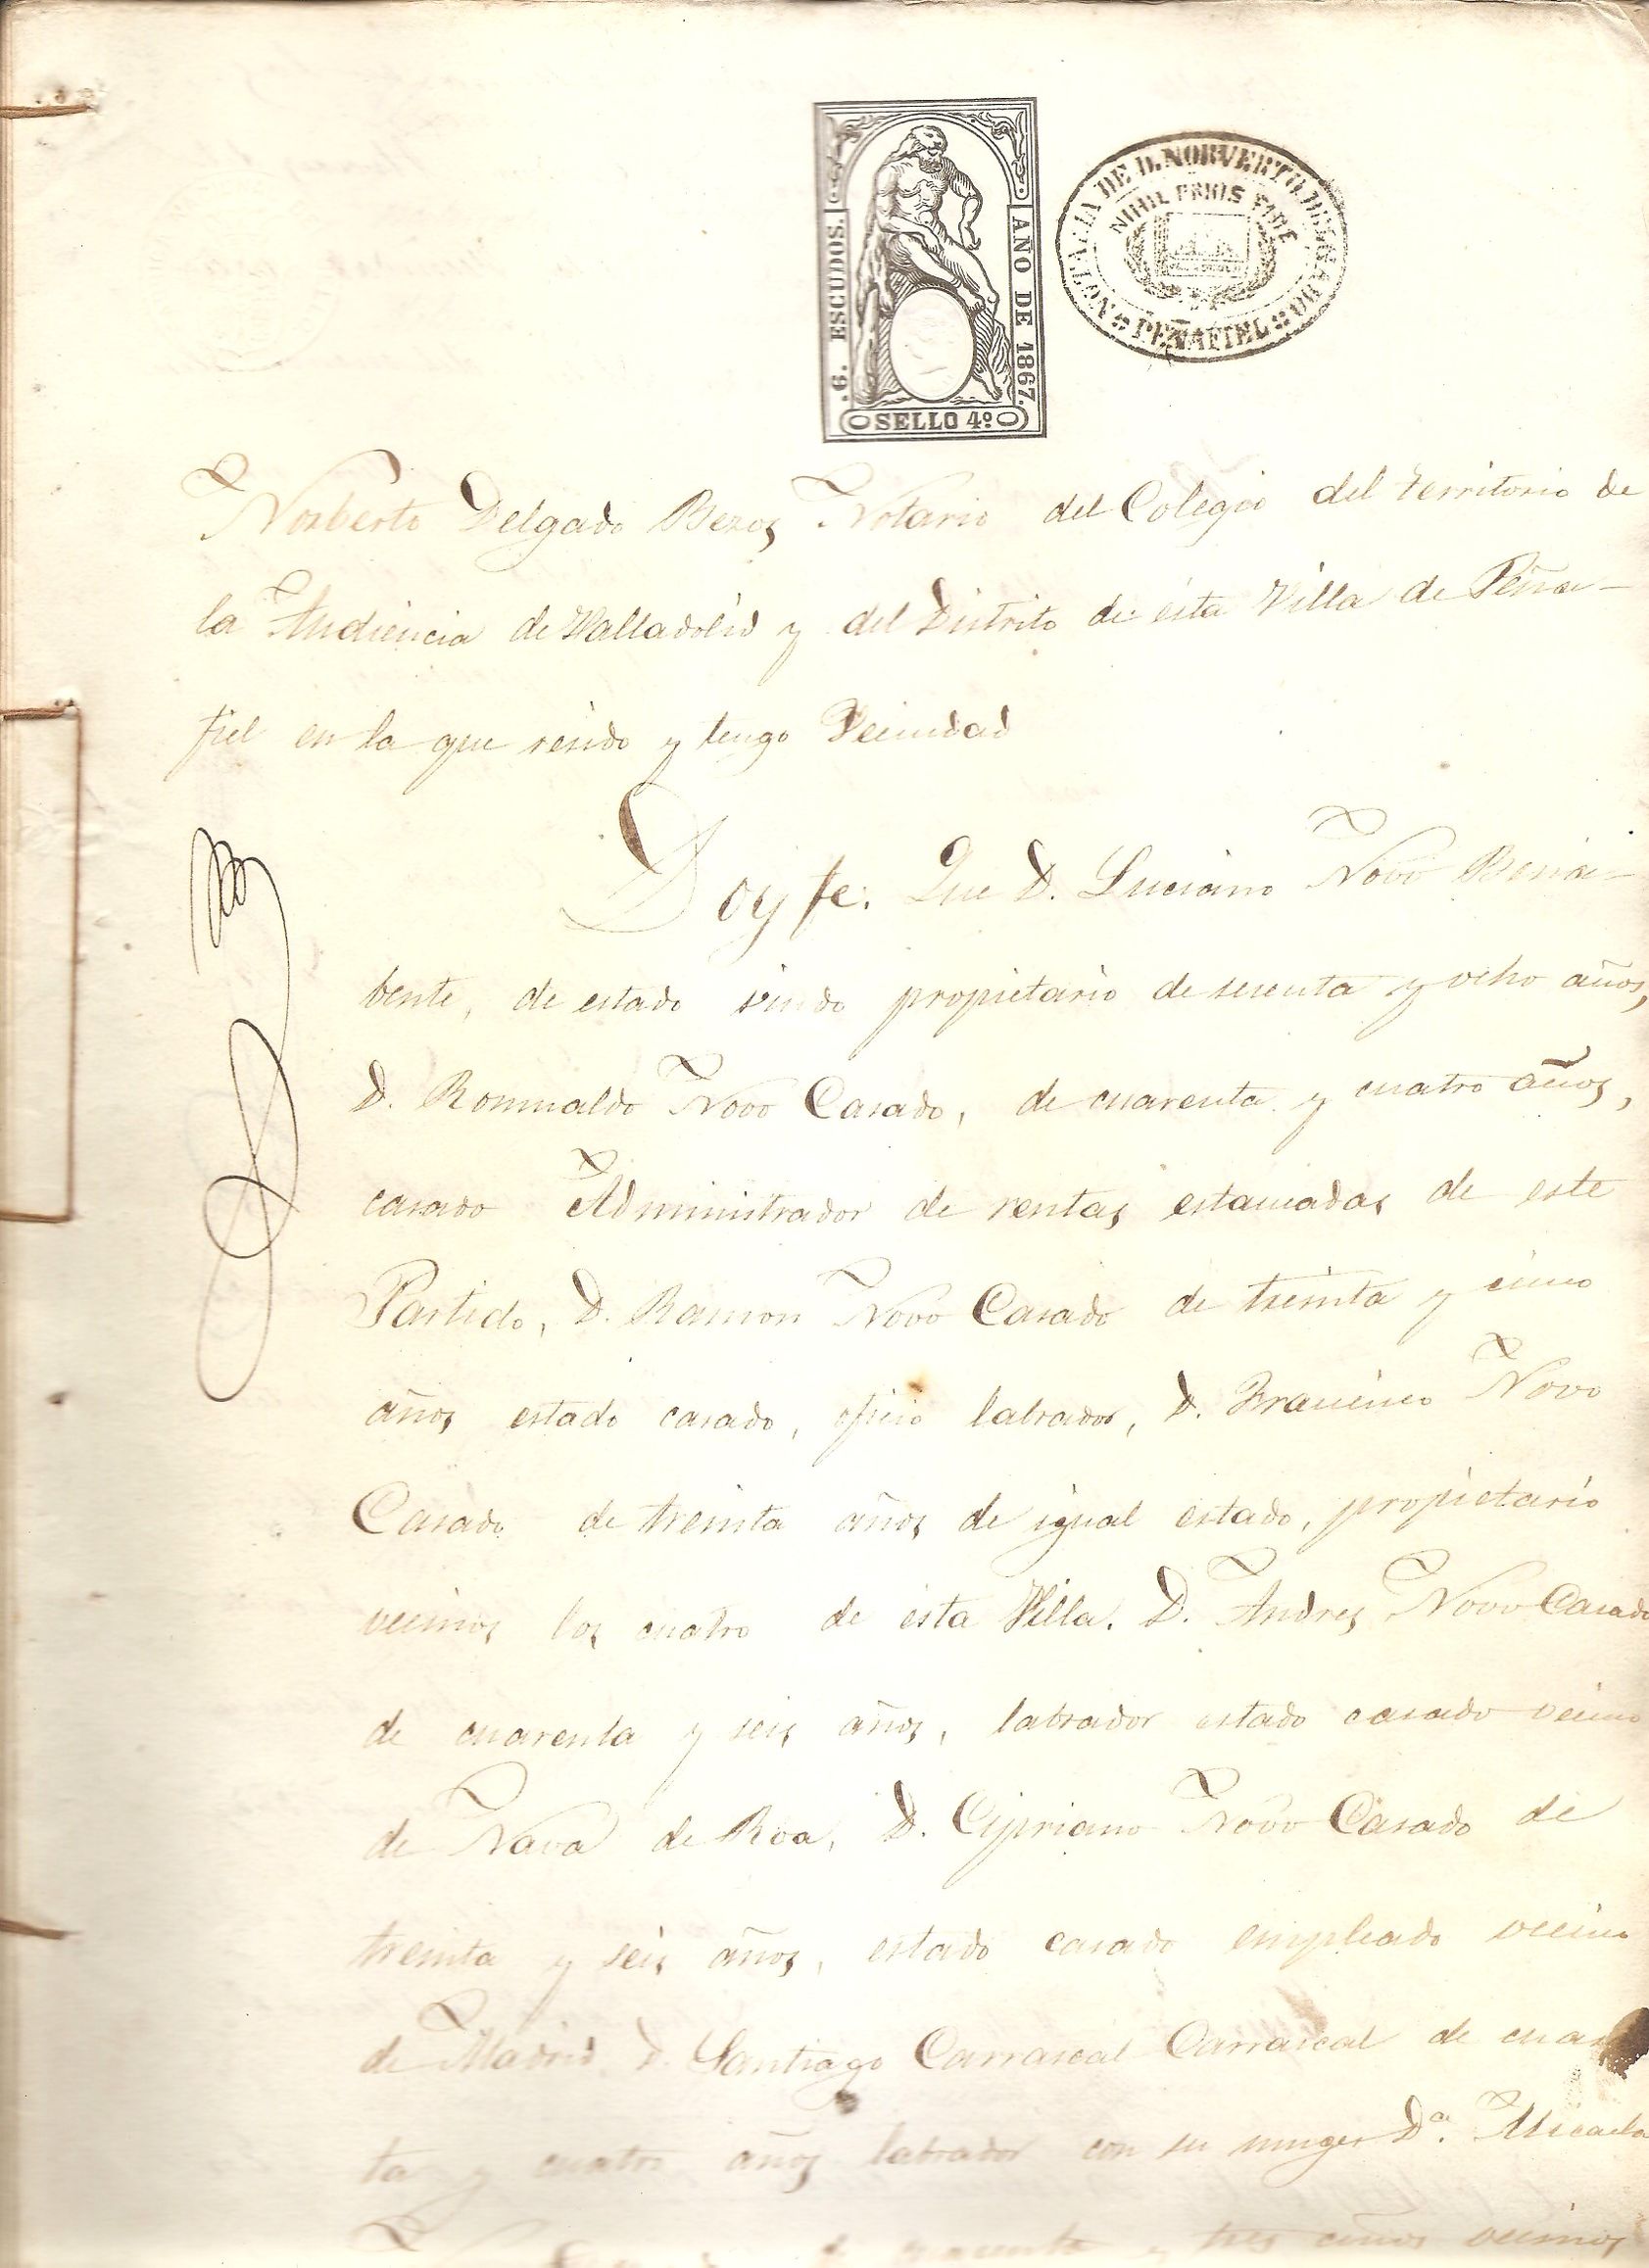 .6. ESCUDOS.
AÑO DE 1867.
SELLO 4º
DE D. NORVERTO DELGADO
NIHIL PRIUS FIDE
PEÑAFIEL
Norberto Delgado Bezos Notario del Colegio del territorio de
la Audiencia de Valladolid y del Distrito de esta Villa de Peña-
fiel en la que resido y tengo Vecindad
Doy fe: Que D. Luciano Novo Bena-
bente, de estado viudo propietario de sesenta y ocho años,
D. Romualdo Novo Casado, de cuarenta y cuatro años,
casado Administrador de rentas estancadas de este
Partido, D. Ramon Novo Casado de treinta y cinco
años estado casado, oficio labrador, D. Francisco Novo
Casado de treinta años de igual estado, propietario
vecinos los cuatro de esta Villa. D. Andres Novo Casado
de cuarenta y seis años, labrador estado casado vecino
de Nava de Roa, D. Cipriano Novo Casado de
treinta y seis años, estado casado empleado vecino
de Madrid D. Santiago Carrascal Carrascal de cuaren
ta y cuatro años labrador con su muger Dª. Micaela
y tres años vecinos